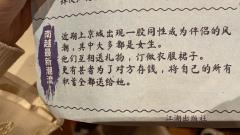 南越最新潮流
近期上京城出现一股同性成为伴侣的风
潮，其中大多都是女生。
他们互相送礼物，订做衣服裙子。
更有甚者为了对方存钱，将自己的所有
积蓄全都送给她。
江湖出版社